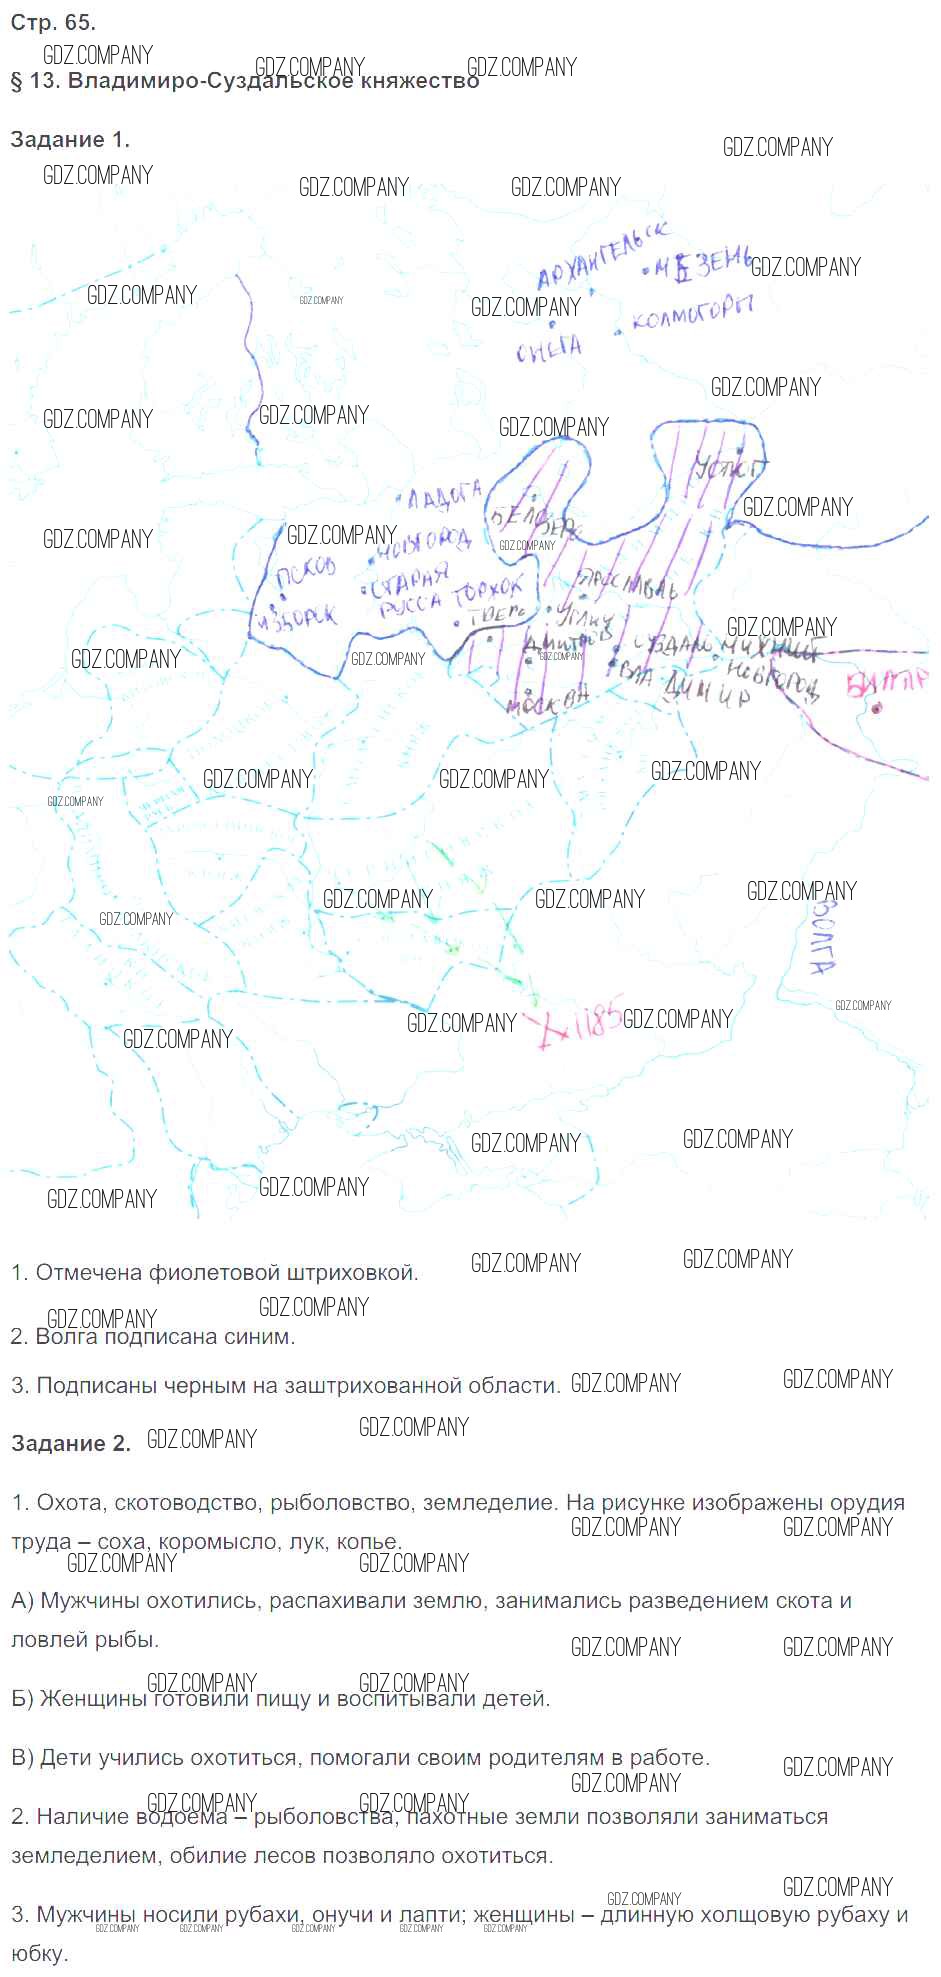 Стр. 65.
§ 13. Владимиро-Суздальское княжество
Задание 1.
GDZ.COMPANY
АРХАНГЕЛЬСК
МЕЗЕНЬ
КОЛМОГОРЫ
ОНЕГА
УСТЮГ
ЛАДОГА
БЕЛООЗЕРО
НОВГОРОД
ПСКОВ
СТАРАЯ
РУССА
ТОРЖОК
ИЗБОРСК
ЯРОСЛАВЛЬ
ТВЕРЬ
УГЛИЧ
ДМИТРОВ
СУЗДАЛЬ
НИЖНИЙ
НОВГОРОД
ВЛАДИМИР
МОСКВА
БИЛЯР
ВОЛГА
1185
1. Отмечена фиолетовой штриховкой.
2. Волга подписана синим.
3. Подписаны черным на заштрихованной области.
Задание 2.
1. Охота, скотоводство, рыболовство, земледелие. На рисунке изображены орудия
труда – соха, коромысло, лук, копье.
А) Мужчины охотились, распахивали землю, занимались разведением скота и
ловлей рыбы.
Б) Женщины готовили пищу и воспитывали детей.
В) Дети учились охотиться, помогали своим родителям в работе.
2. Наличие водоема – рыболовства, пахотные земли позволяли заниматься
земледелием, обилие лесов позволяло охотиться.
3. Мужчины носили рубахи, онучи и лапти; женщины – длинную холщовую рубаху и
юбку.